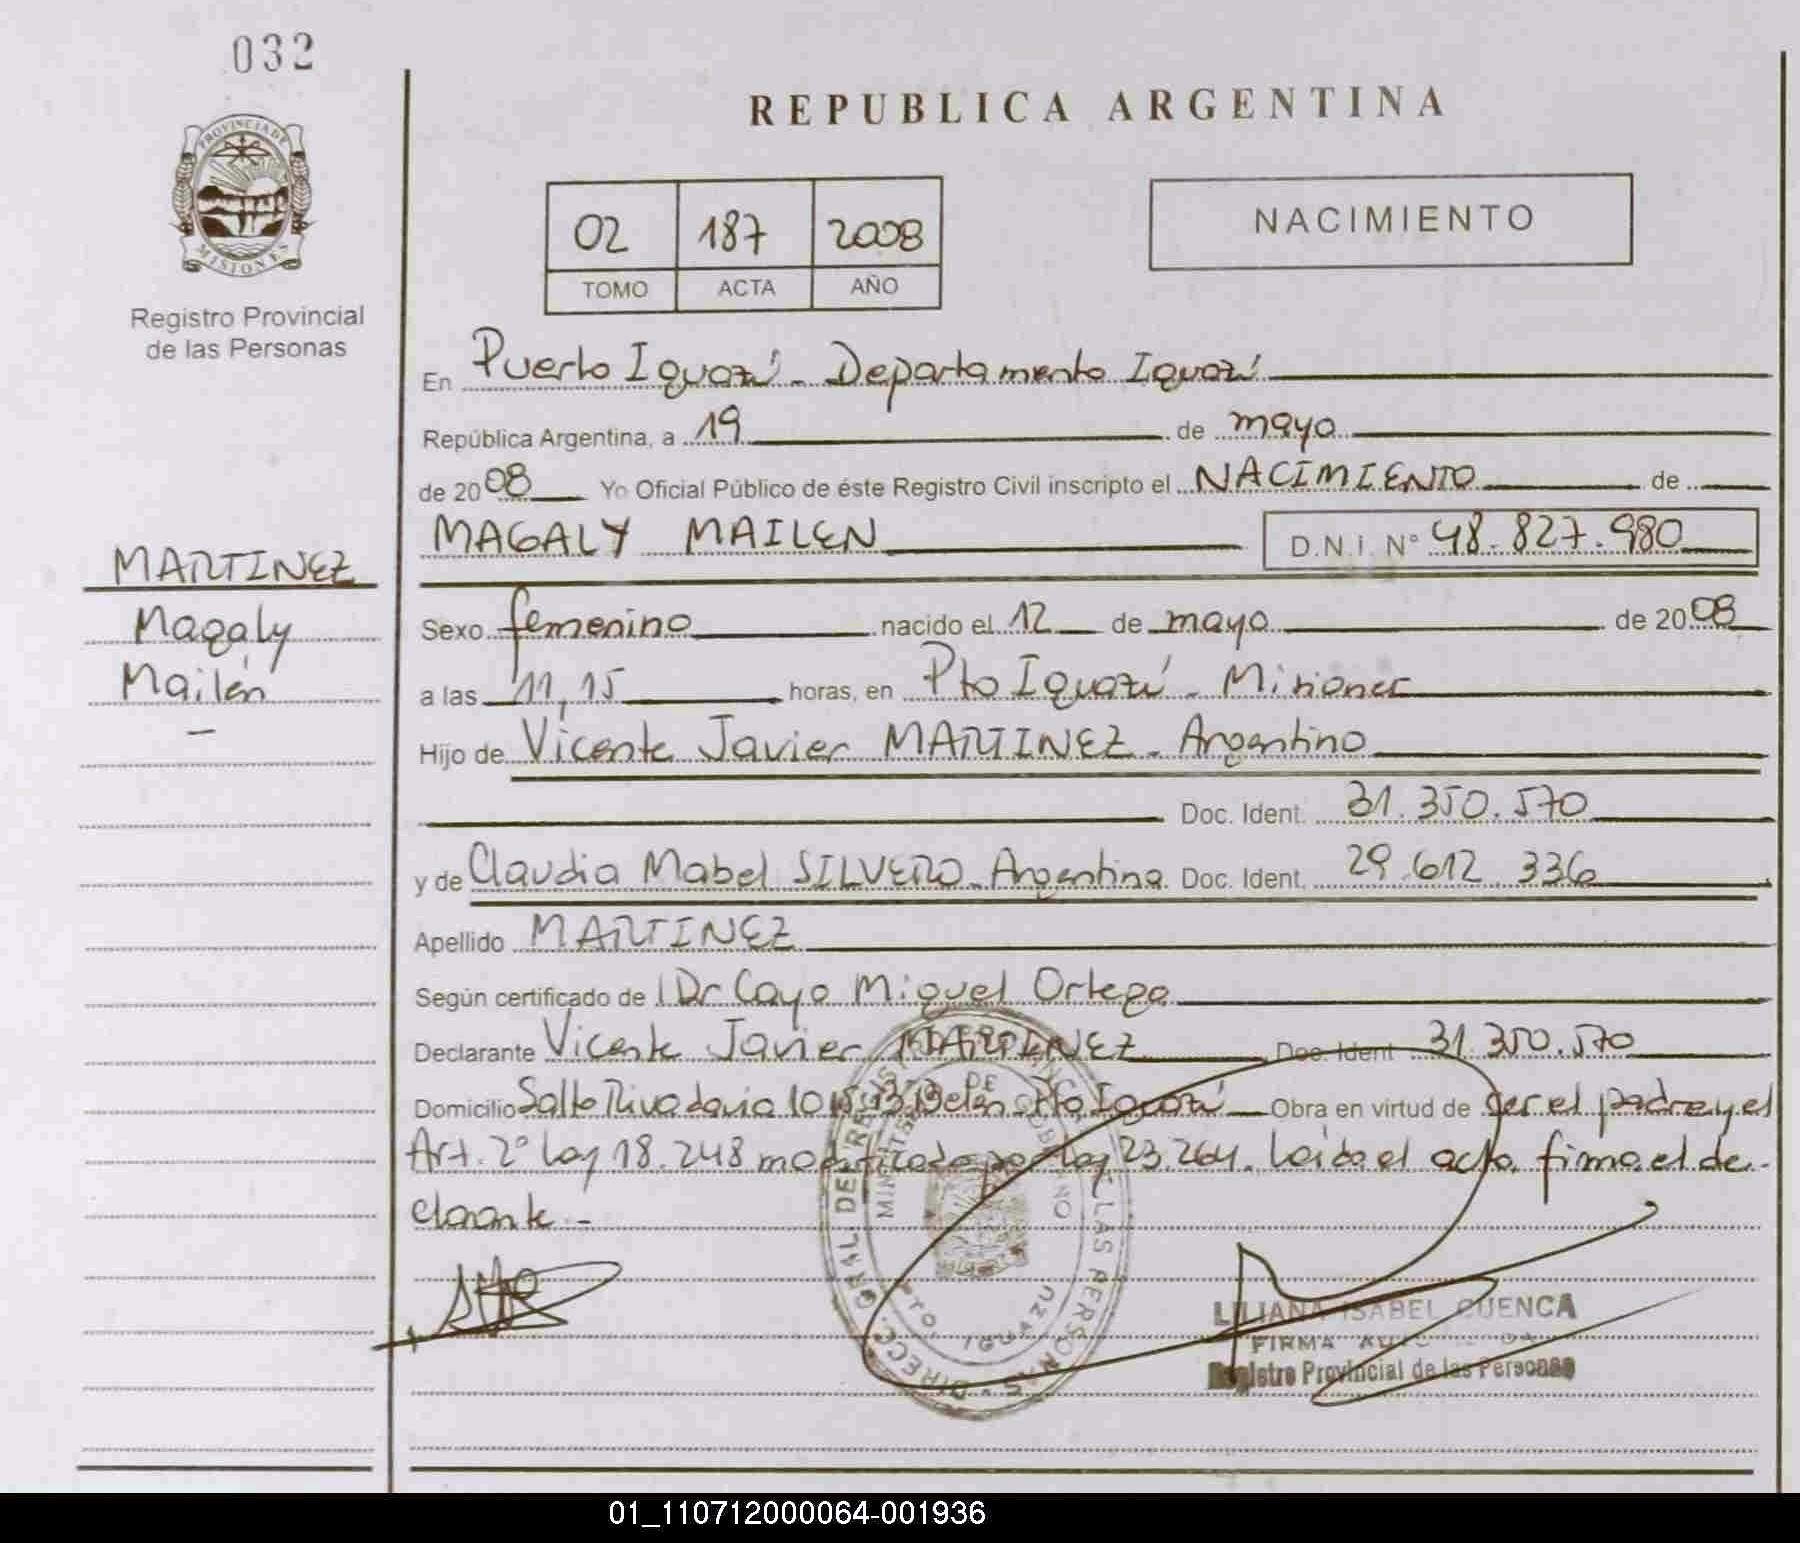 032
PROVINCIA DE
MISIONES
Registro Provincial
de las Personas
REPUBLICA ARGENTINA
02 187 2008
TOMO ACTA AÑO
NACIMIENTO
En Puerto Iguazú - Departamento Iguazú
República Argentina, a 19 de mayo
de 2008 Yo Oficial Público de éste Registro Civil inscripto el NACIMIENTO de
MAGALY MAILEN D.N.I. N° 48.827.980
MARTINEZ
Magaly
Mailén
Sexo femenino nacido el 12 de mayo de 2008
a las 11,15 horas, en Pto Iguazú - Misiones
Hijo de Vicente Javier MARTINEZ - Argentino
Doc. Ident. 31.350.570
y de Claudia Mabel SILVERO - Argentina Doc. Ident. 29.612.336
Apellido MARTINEZ
Según certificado de Dr Cayo Miguel Ortega
Declarante Vicente Javier MARTINEZ Doc. Ident 31.350.570
Domicilio Salto Rivadavia Pto Iguazú Obra en virtud de ser el padre y el
Art. 2° Ley 18.248 modificado por Ley 23.264. Leída el acta, firma el de-
clarante -
DIRECC. GRAL. DE REGIST LAS PERSONAS
MINIST DE GOBIERNO
PTO. IGUAZU
LILIANA ISABEL CUENCA
FIRMA
Registro Provincial de las Personas
01_110712000064-001936